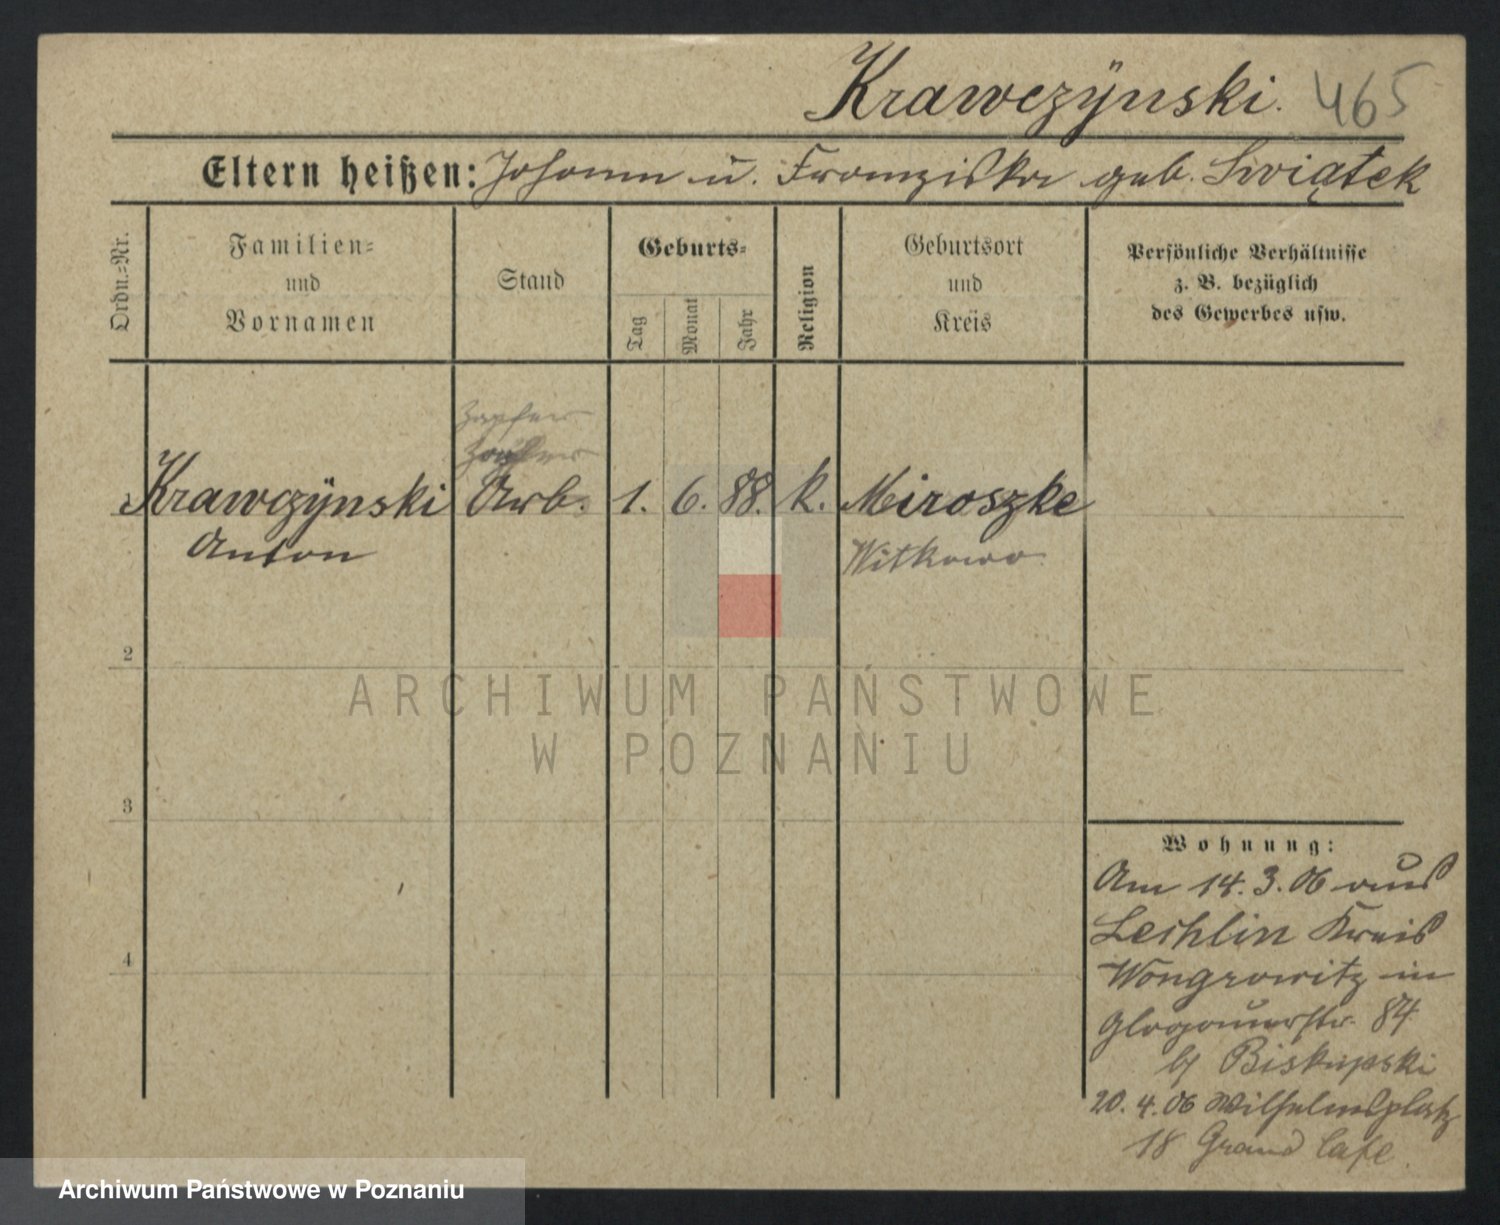 Krawczÿnski. 465
Eltern heißen: Johann u. Franziska geb. Swiątek
Ordn.=Nr.
Familien=
und
Vornamen
Stand
Geburts=
Tag
Monat
Jahr
Religion
Geburtsort
und
Kreis
Persönliche Verhältnisse
z. B. bezüglich
des Gewerbes usw.
Zapfer
Krawczÿnski Arb. 1. 6. 88. k. Miroszke
Anton Witkowo
2
ARCHIWUM PAŃSTWOWE
W POZNANIU
3
4
Wohnung:
Am 14.3.06 aus
Lechlin Kreis
Wongrowitz in
Glogauerstr. 84
bj Biskupski
20.4.06 Wilhelmsplatz
18 Grand Cafe.
Archiwum Państwowe w Poznaniu